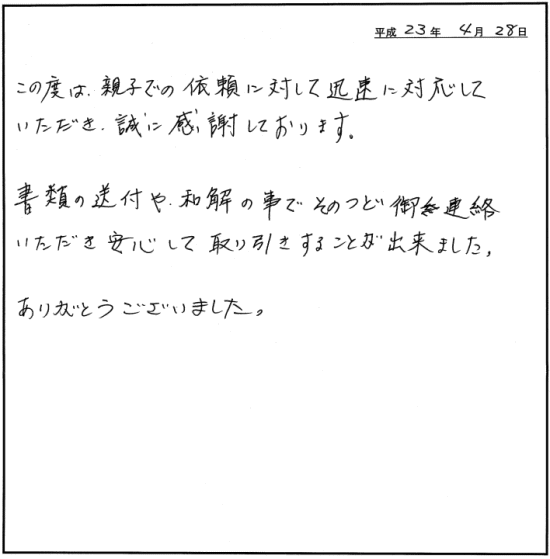 平成 23年 4月 28日
この度は、親子での依頼に対して迅速に対応して
いただき、誠に感謝しております。
書類の送付や、和解の事でそのつど御連絡
いただき安心して取り引きすることが出来ました。
ありがとうございました。